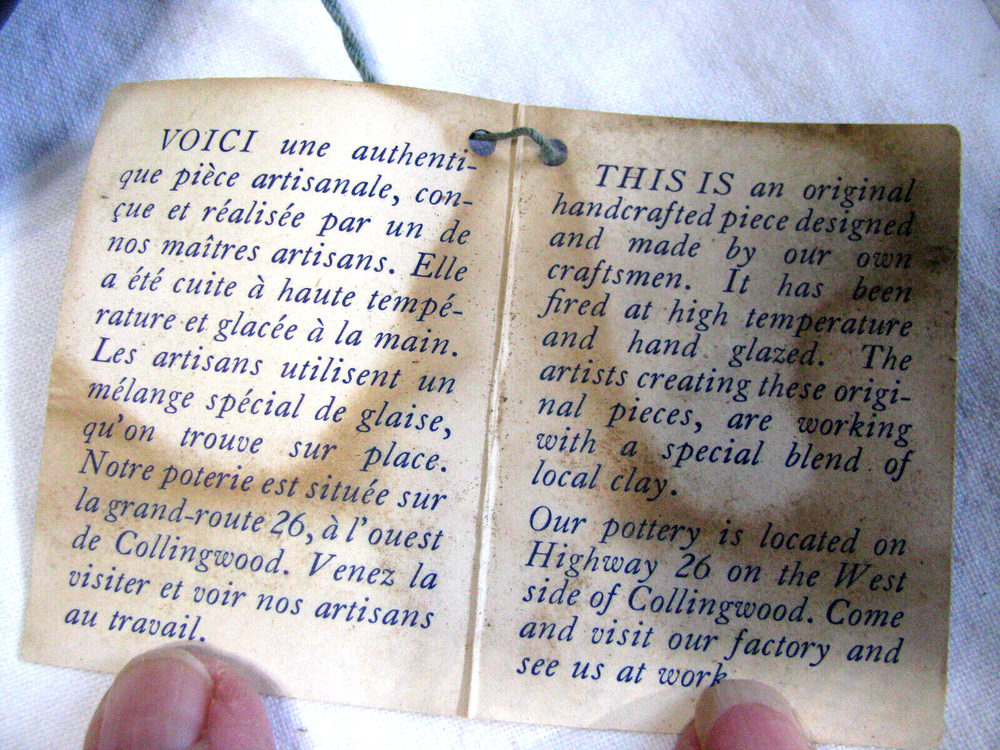 VOICI une authenti-
que pièce artisanale, con-
çue et réalisée par un de
nos maîtres artisans. Elle
a été cuite à haute tempé-
rature et glacée à la main.
Les artisans utilisent un
mélange spécial de glaise,
qu'on trouve sur place.
Notre poterie est située sur
la grand-route 26, à l'ouest
de Collingwood. Venez la
visiter et voir nos artisans
au travail.
THIS IS an original
handcrafted piece designed
and made by our own
craftsmen. It has been
fired at high temperature
and hand glazed. The
artists creating these origi-
nal pieces, are working
with a special blend of
local clay.
Our pottery is located on
Highway 26 on the West
side of Collingwood. Come
and visit our factory and
see us at work